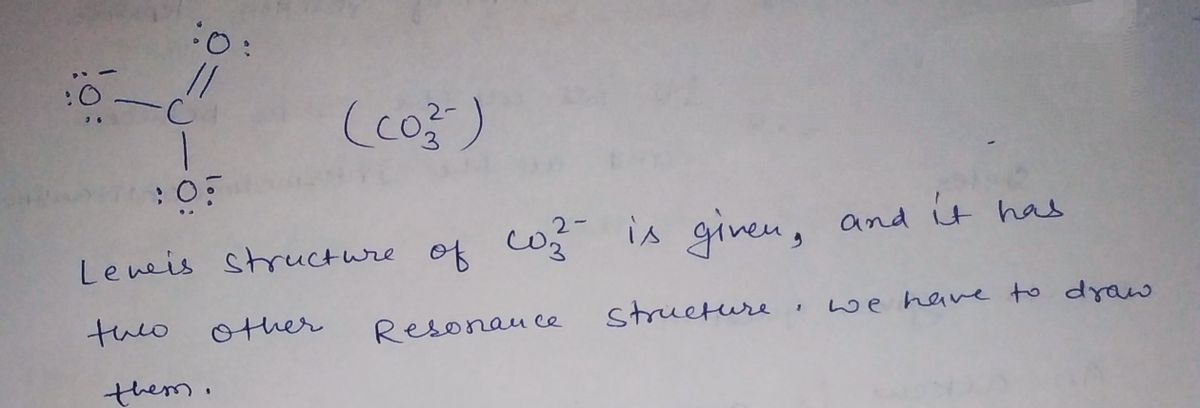 :O:
:O – C
(CO₃²⁻)
:O:
Leweis structure of CO₃²⁻ is given, and it has
two other Resonance structure. we have to draw
them.